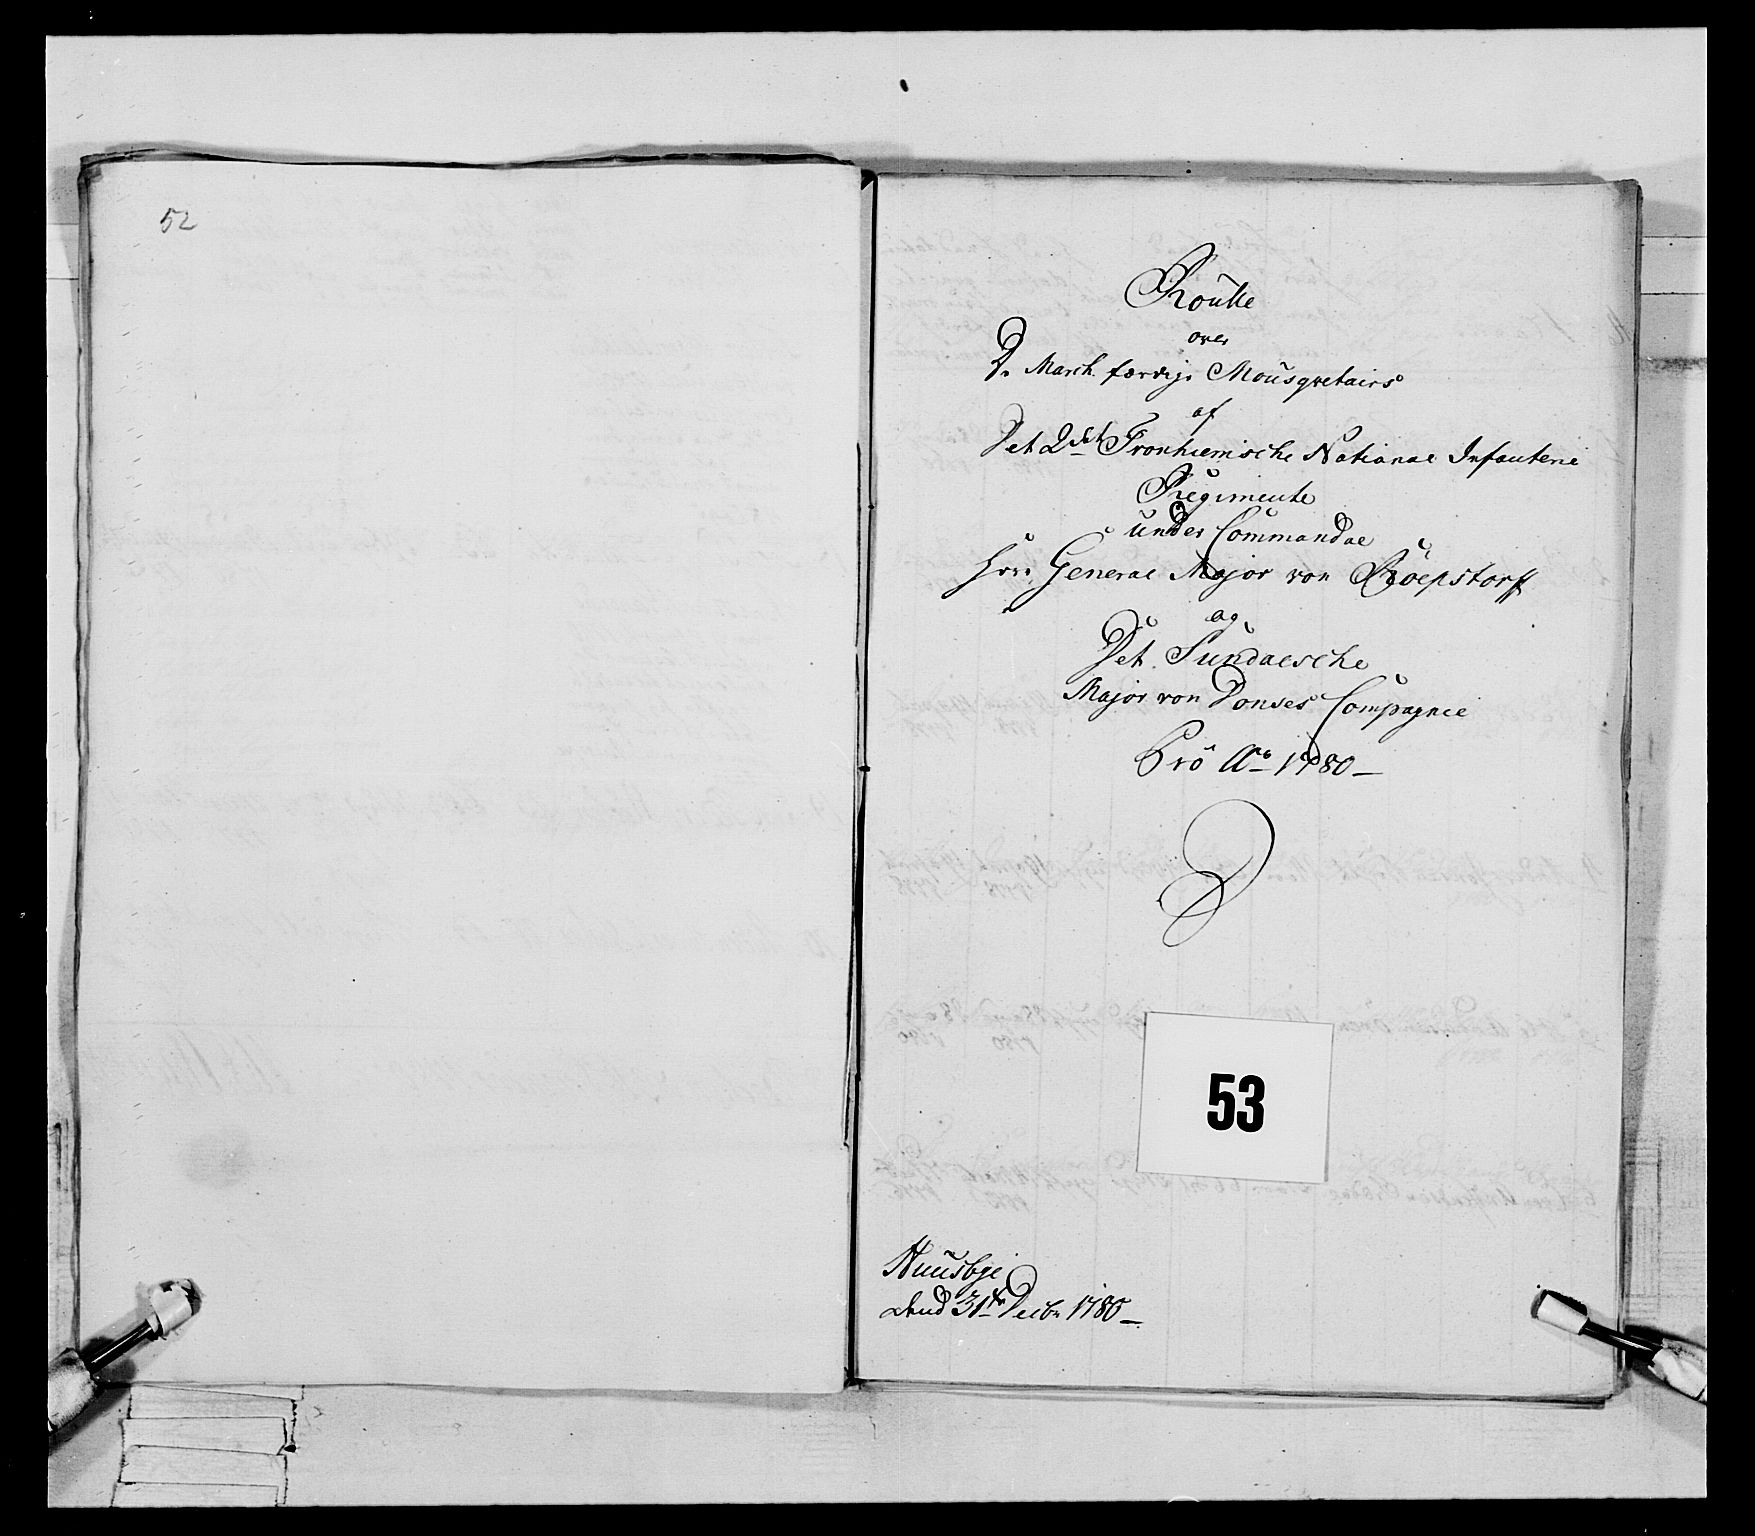 52
Roulle
over
De March færdige Mousqvetairs
af
Det 2det Tronhiemsche National Infanterie
Regimente
under Commandae
Herr General Major von Röepstorff
og
Det Sundalsche
Major von Donses Compagnie
Prô Ao 1780
53
Huusbye
dend 31te Decbr 1780